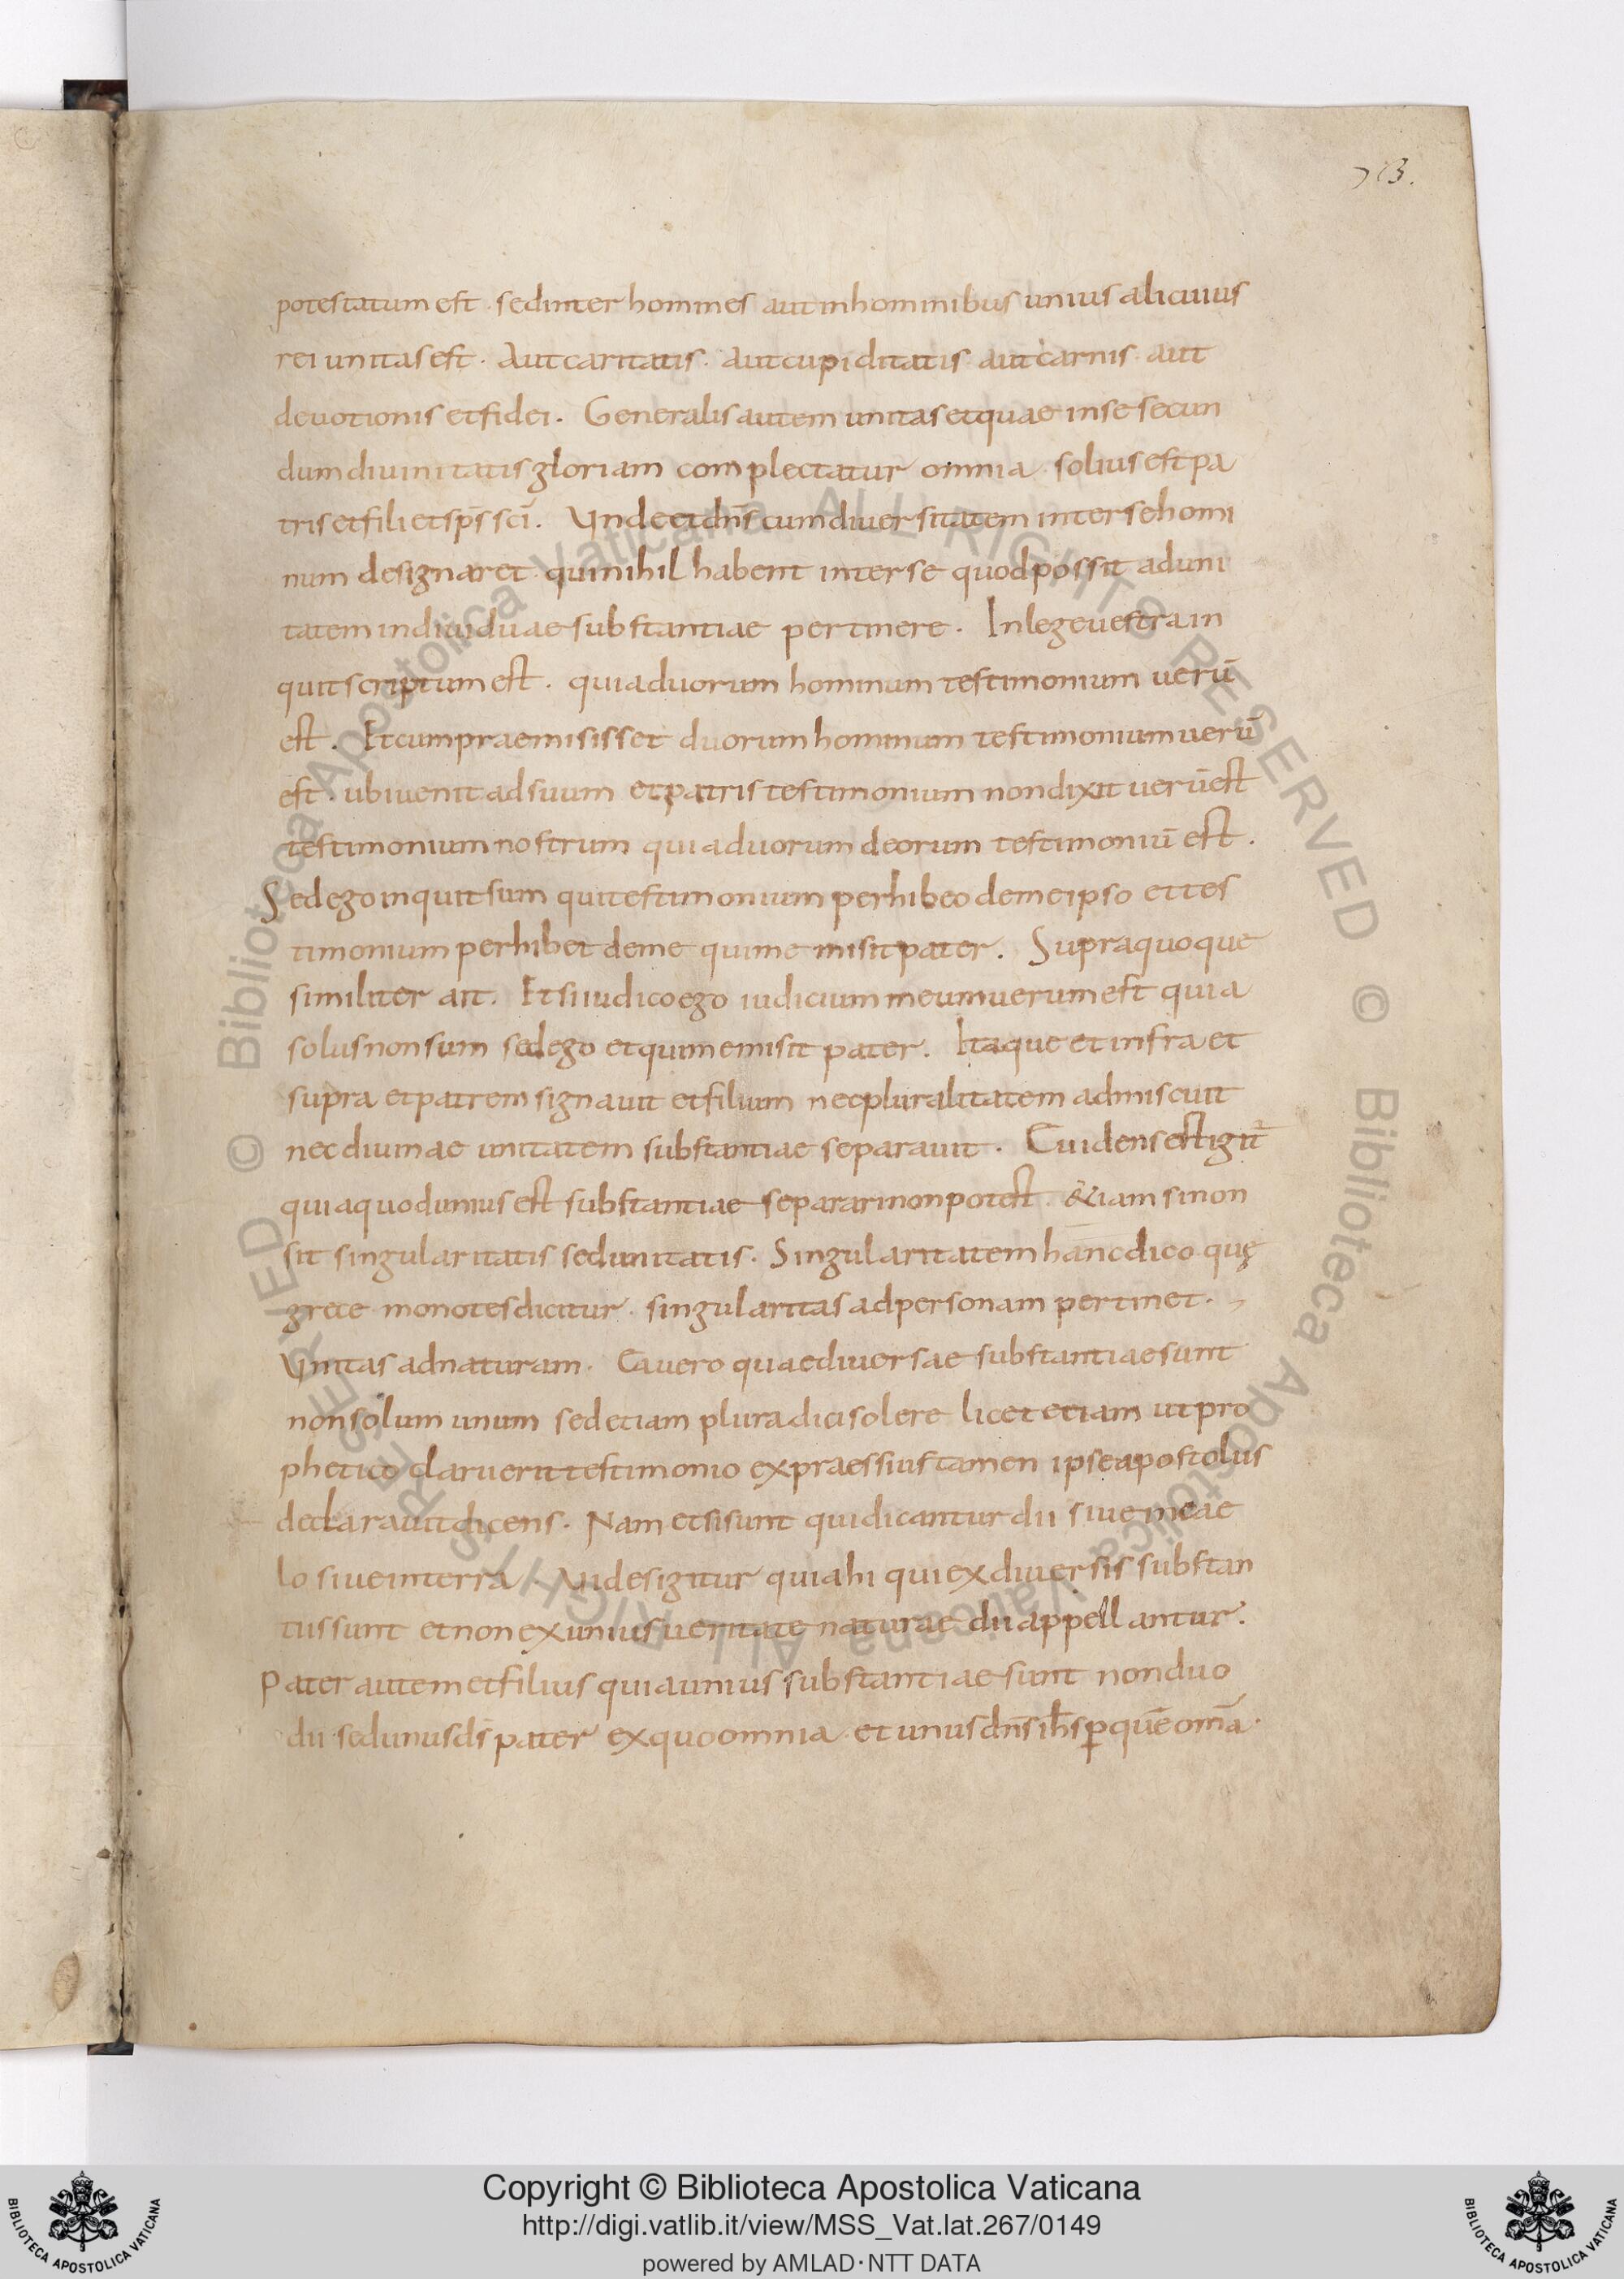 713.
potestatum est · sed inter homines aut in hominibus unius alicuius
rei unitas est · Aut caritatis · aut cupiditatis aut carnis · aut
devotionis et fidei · Generalis autem unitas et quae in se secun
dum divinitatis gloriam complectatur omnia · solius est pa
tris et fili et sp̄s sc̄i. Unde et dn̄s cum diversitatem inter se homi
num designaret qui nihil habent inter se quod possit ad uni
tatem individuae substantiae pertinere · In lege vestra in
quit scriptum est · quia duorum hominum testimonium verū
est. Et cum praemisisset duorum hominum testimonium verū
est · ubi venit ad suum et patris testimonium non dixit verū est
testimonium nostrum quia duorum deorum testimoniū est.
Sed ego inquit sum qui testimonium perhibeo de me ipso et tes
timonium perhibet de me qui me misit pater. Supra quoque
similiter ait. Et si iudico ego iudicium meum verum est quia
solus non sum sed ego et qui me misit pater. Itaque et infra et
supra et patrem signavit et filium nec pluralitatem admiscuit
nec divinae unitatem substantiae separavit · Evidens est igit̄
quia quod unius est substantiae separari non potest · &iam si non
sit singularitatis sed unitatis. Singularitatem hanc dico quę
grece monotes dicitur · singularitas ad personam pertinet ·
Unitas ad naturam. Ea vero quae diversae substantiae sunt
non solum unum sed etiam plura dici solere licet etiam ut pro
phetico claruerit testimonio expraessius tamen ipse apostolus
declaravit dicens. Nam et si sunt qui dicantur dii sive in eae
lo sive in terra Vides igitur quia hi qui ex diversis substan
tiis sunt et non ex unius veritate naturae dii appellantur.
Pater autem et filius quia unius substantiae sunt non duo
dii · sed unus d̄s pater ex quo omnia · et unus dn̄s ih̄s p̱ quē om̄a ·
© Biblioteca Apostolica Vaticana ALL RIGHTS RESERVED © Biblioteca Apostolica Vaticana ALL RIGHTS RESERVED
BIBLIOTECA APOSTOLICA VATICANA
Copyright © Biblioteca Apostolica Vaticana
http://digi.vatlib.it/view/MSS_Vat.lat.267/0149
powered by AMLAD·NTT DATA
BIBLIOTECA APOSTOLICA VATICANA